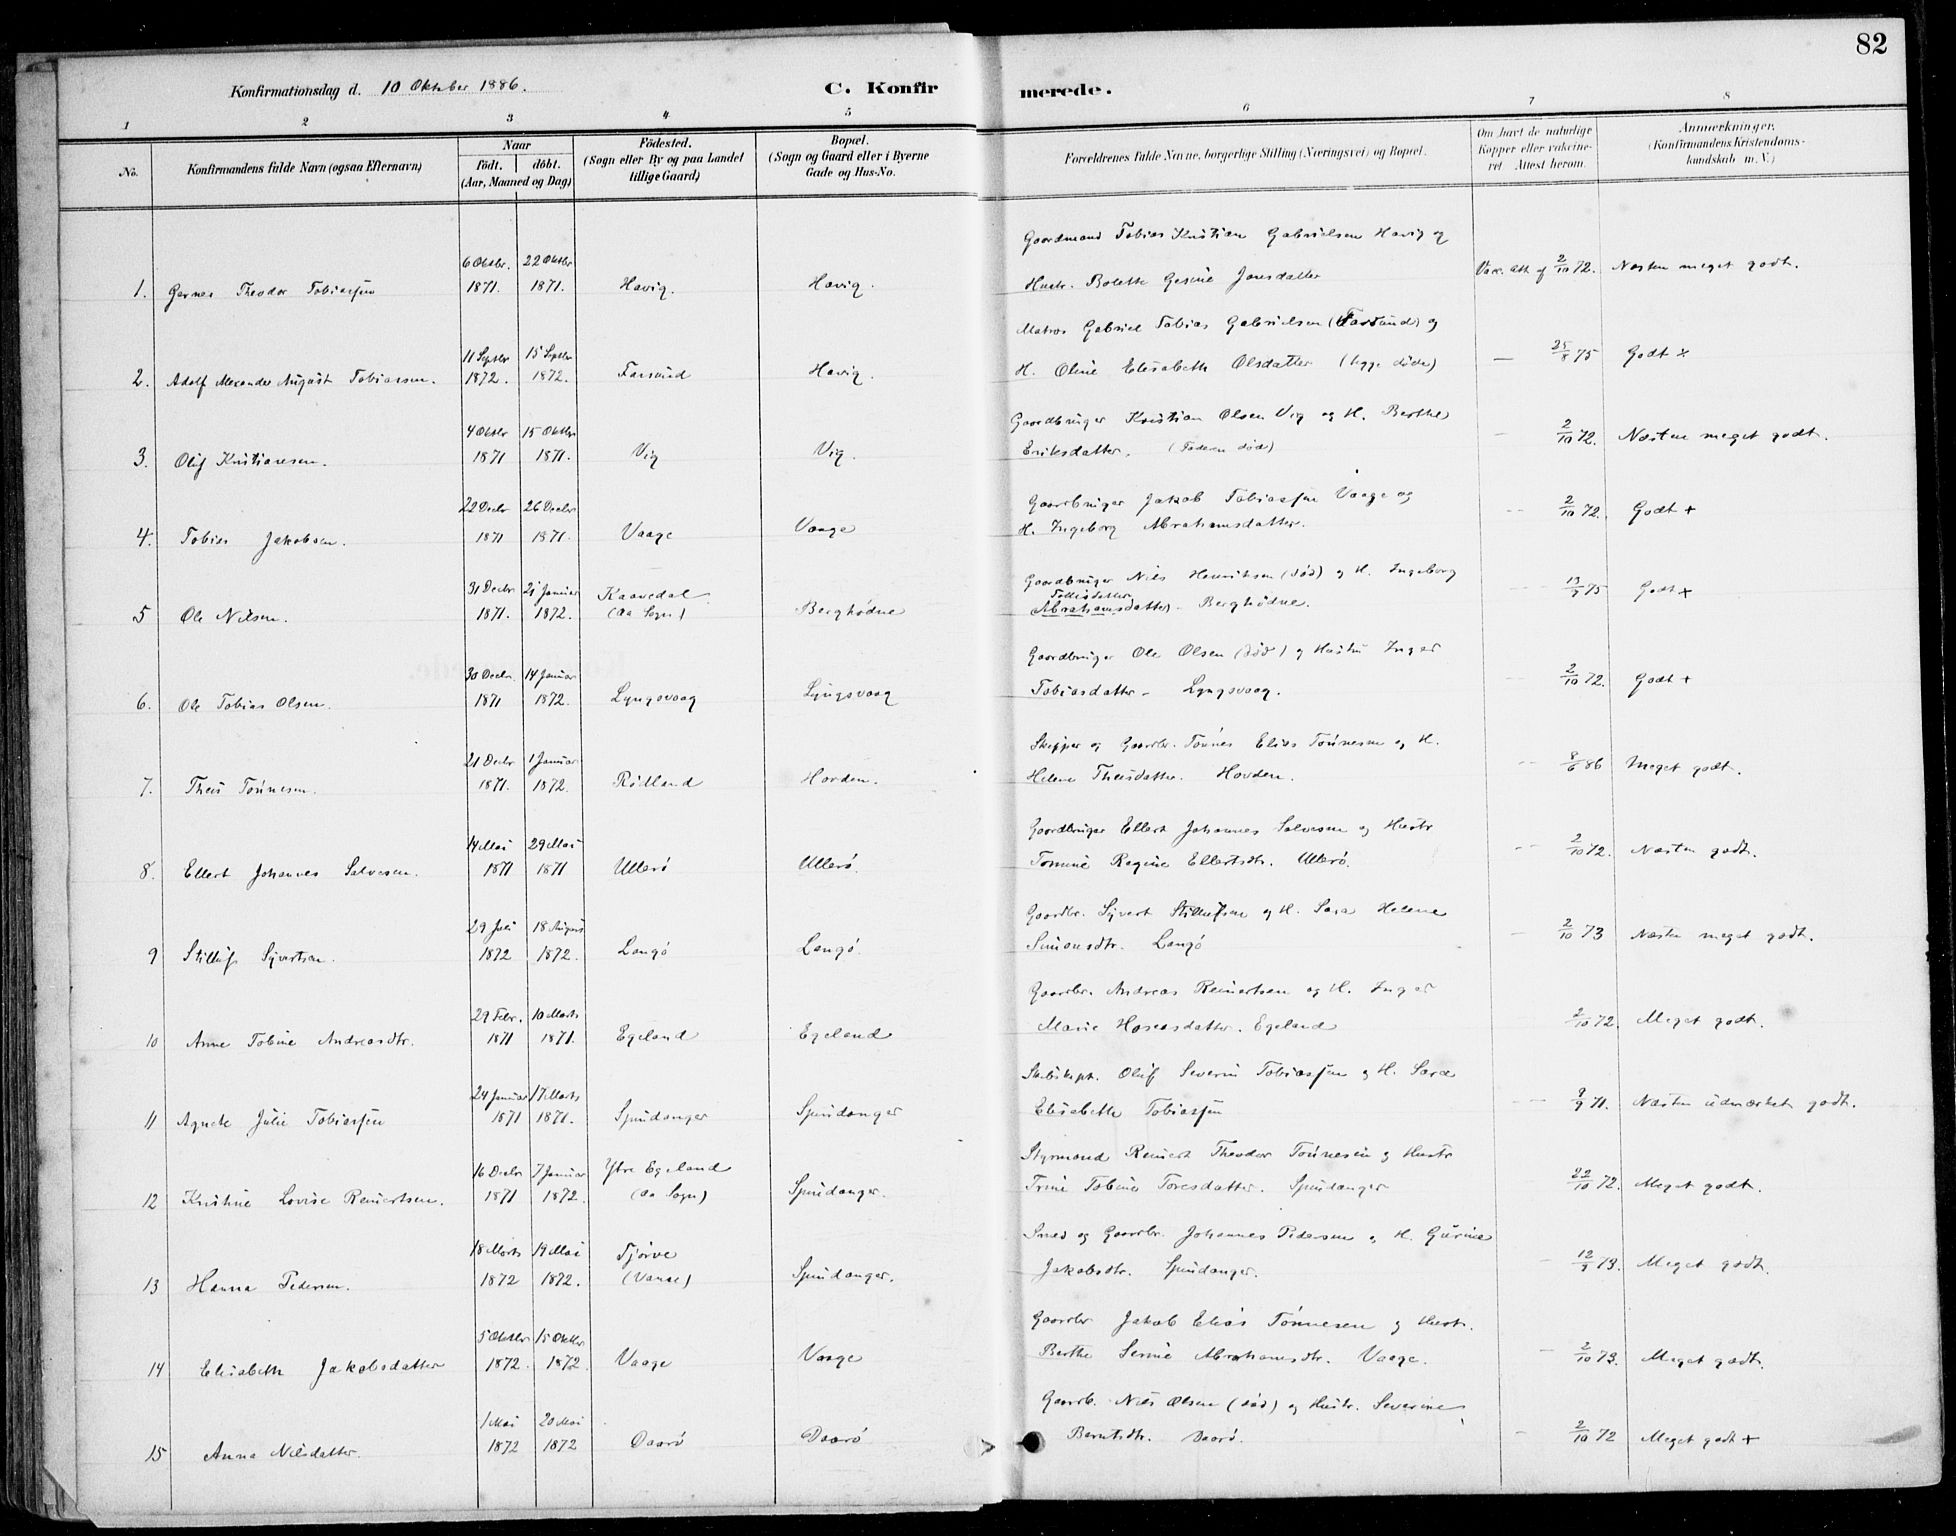 82
Konfirmationsdag d. 10 Oktober 1886.
C. Konfirmerede.
1 2 3 4 5 6 7 8
No.
Konfirmandens fulde Navn (ogsaa Efternavn)
Naar
født. døbt.
(Aar, Maaned og Dag)
Fødested.
(Sogn eller By og paa Landet
tillige Gaard)
Bopæl.
(Sogn og Gaard eller i Byerne
Gade og Hus-No.
Forældrenes fulde Navne, borgerlige Stilling (Næringsvei) og Bopæl.
Om havt de naturlige
Kopper eller vakcine-
ret Attest herom.
Anmærkninger.
(Konfirmandens Kristendoms-
kundskab m. V.)
Gaardmand Tobias Kristian Gabrielsen Havig og
6 Oktbr. 22 Oktbr
1. Theodor Tobiassen 1871. 1871. Havig. Havig. Hustr. Bolette Gesine Jonsdatter Vax. Att. af 2/10 72. Næsten meget godt.
Matros Gabriel Tobias Gabrielsen (Farsund) og
11 Septbr 15 Septbr
2. Adolf Alexander August Tobiassen. 1872. 1872. Farsund Havig. H. Oline Elisabeth Olsdatter (begge døde) — 25/8 75 Godt x
Gaardbruger Kristian Olsen Vig og H. Berthe
4 Oktbr 15 Oktbr
3. Oluf Kristiansen. 1871 1871. Vig Vig. Eriksdatter. (Faderen død) — 2/10 72. Næsten meget godt.
Gaardbruger Jakob Tobiassen Vaage og
22 Decbr 26 Decbr
4. Tobias Jakobsen. 1871 1871. Vaage Vaage H. Ingeborg Abrahamsdatter. -- 2/10 72. Godt +
Gaardbruger Nils Henriksen (død) og H. Ingeborg
31 Decbr 21 Januar Kaavedal
5 Ole Nilsen. 1871. 1872. (Aa Sogn) Berghødne Abrahamsdatter - Berghødne. -- 75 Godt +
Gaardbruger Ole Olsen (død) og Hustru Inger
30 Decbr. 14 Januar
6. Ole Tobias Olsen. 1871 1872. Lyngsvaag Lyngsvaag Tobiasdatter - Lyngsvaag. - 2/10 72. Godt +
Skipper og Gaardbr. Tønnes Elias Tønnesen og H.
21 Decbr 1 Januar
7. Theis Tønnesen. 1871. 1872. Rødland Hovden. Helene Theisdatter. Hovden. -- 8/6 86 Meget godt.
Gaardbruger Ellert Johannes Salvesen og Hustr
14 Mai 29 Mai
8. Ellert Johannes Salvesen. 1871 1871 Ullerø Ullerø. Tomine Regine Ellertsdtr. Ullerø. -- 2/10 72. Næsten godt.
Gaardbr. Syvert Stillufsen og H. Sara Helene
29 Juli 18 August
9 Stilluf Syvertsen. 1872 1872. Langø Langø. Simonsdtr. Langø - 2/10 73 Næsten meget godt.
Gaardbr. Andreas Reinertsen og H. Inger
29 Febr. 10 Marts
10 Anne Tobine Andreasdtr. 1871 1871. Egeland Egeland Marie Hoseasdatter. Egeland — 2/10 72. Meget godt.
Skibskapt. Oluf Severin Tobiassen og H. Sara
24 Januar 17 Marts
11 Agnete Julie Tobiassen 1871 1871. Spindanger Spindanger Elisabeth Tobiassen -- 9/9 71. Næsten udmærket godt.
Styrmand Reinert Theodor Tønnesen og Hustr
16 Decbr 7 Januar Ytre Egeland
12 Kristine Lovise Reinertsen. 1871 1872. (Aa Sogn) Spindanger. Trine Tobine Toresdatter. Spindanger — 22/10 72. Meget godt.
Smed og Gaardbr. Johannes Pedersen og H. Gurine
18 Marts 19 Mai Tjørve
13 Hanna Pedersen. 1872 1872. (Vanse) Spindanger. Jakobsdtr. Spindanger. - 12/9 73. Meget godt.
Gaardbr Jakob Elias Tønnesen og Hustr.
5 Oktbr 15 Oktbr
14 Elisabeth Jakobsdatter 1872. 1872 Vaage Vaage Berthe Serine Abrahamsdtr. Vaage. - 2/10 73. Meget godt.
Gaardb. Nils Olsen (død) og Hustr. Severine
1 Mai 20 Mai
15 Anna Nilsdatter. 1872 1872 Daarø Daarø Berntsdtr. Daarø. - 2/10 72 Meget godt +